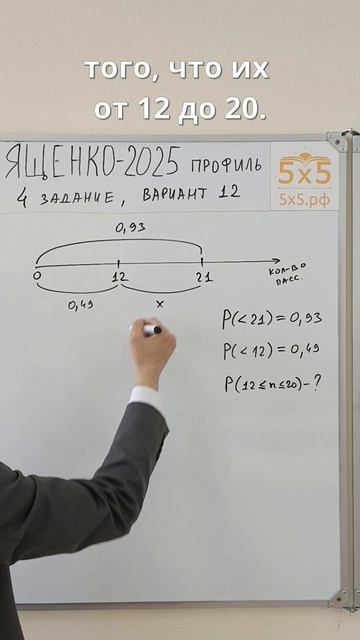 того, что их
от 12 до 20.
ЯЩЕНКО-2025 ПРОФИЛЬ
4 ЗАДАНИЕ, ВАРИАНТ 12
5×5
5x5.рф
0,93
0 12 21
КОЛ-ВО
ПАСС.
0,49 x
P(<21) = 0,93
P(<12) = 0,49
P(12≤n≤20)-?